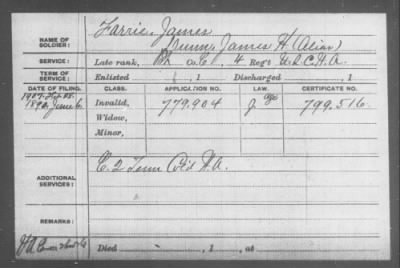 NAME OF SOLDIER: Farris, James
Nunn, James H. (Alias)
SERVICE: Late rank, Co. C, 4 Reg't U.S.C.H.A.
TERM OF SERVICE: Enlisted , 1 Discharged , 1
DATE OF FILING. CLASS. APPLICATION NO. LAW. CERTIFICATE NO.
1907
1890, June 6. Invalid, 779.904 J. 799.516.
Widow,
Minor,
ADDITIONAL SERVICES: C. 2 Tenn Col'd H.A.
REMARKS:
Died , 1 , at